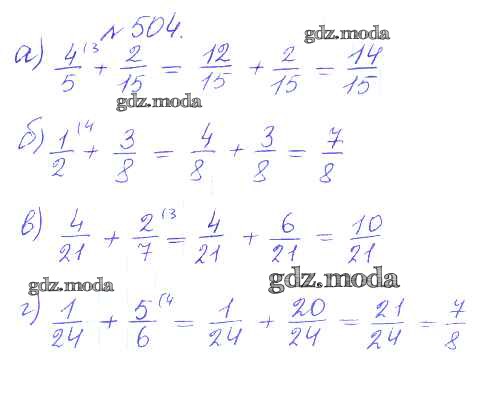 № 504.
gdz.moda
а) 4/5 (3 + 2/15 = 12/15 + 2/15 = 14/15
gdz.moda
б) 1/2 (4 + 3/8 = 4/8 + 3/8 = 7/8
в) 4/21 + 2/7 (3 = 4/21 + 6/21 = 10/21
gdz.moda
gdz.moda
г) 1/24 + 5/6 (4 = 1/24 + 20/24 = 21/24 = 7/8